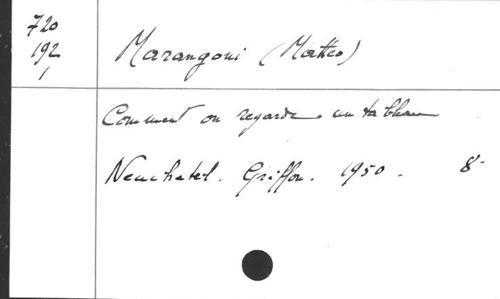 720
192
1
Marangoni (Matteo)
Comment on regarde un tableau
Neuchatel. Griffon. 1950. 8°